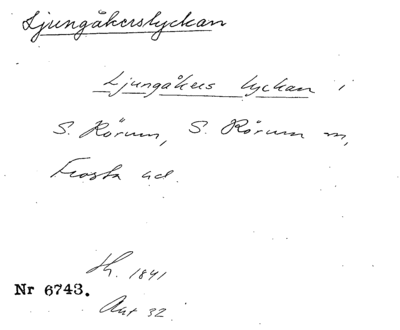 Ljungåkerslyckan
Ljungåkers lyckan i
S. Rörum, S. Rörum sn,
Frosta hd.
Sk. 1841
Nr 6743.
Akt 32